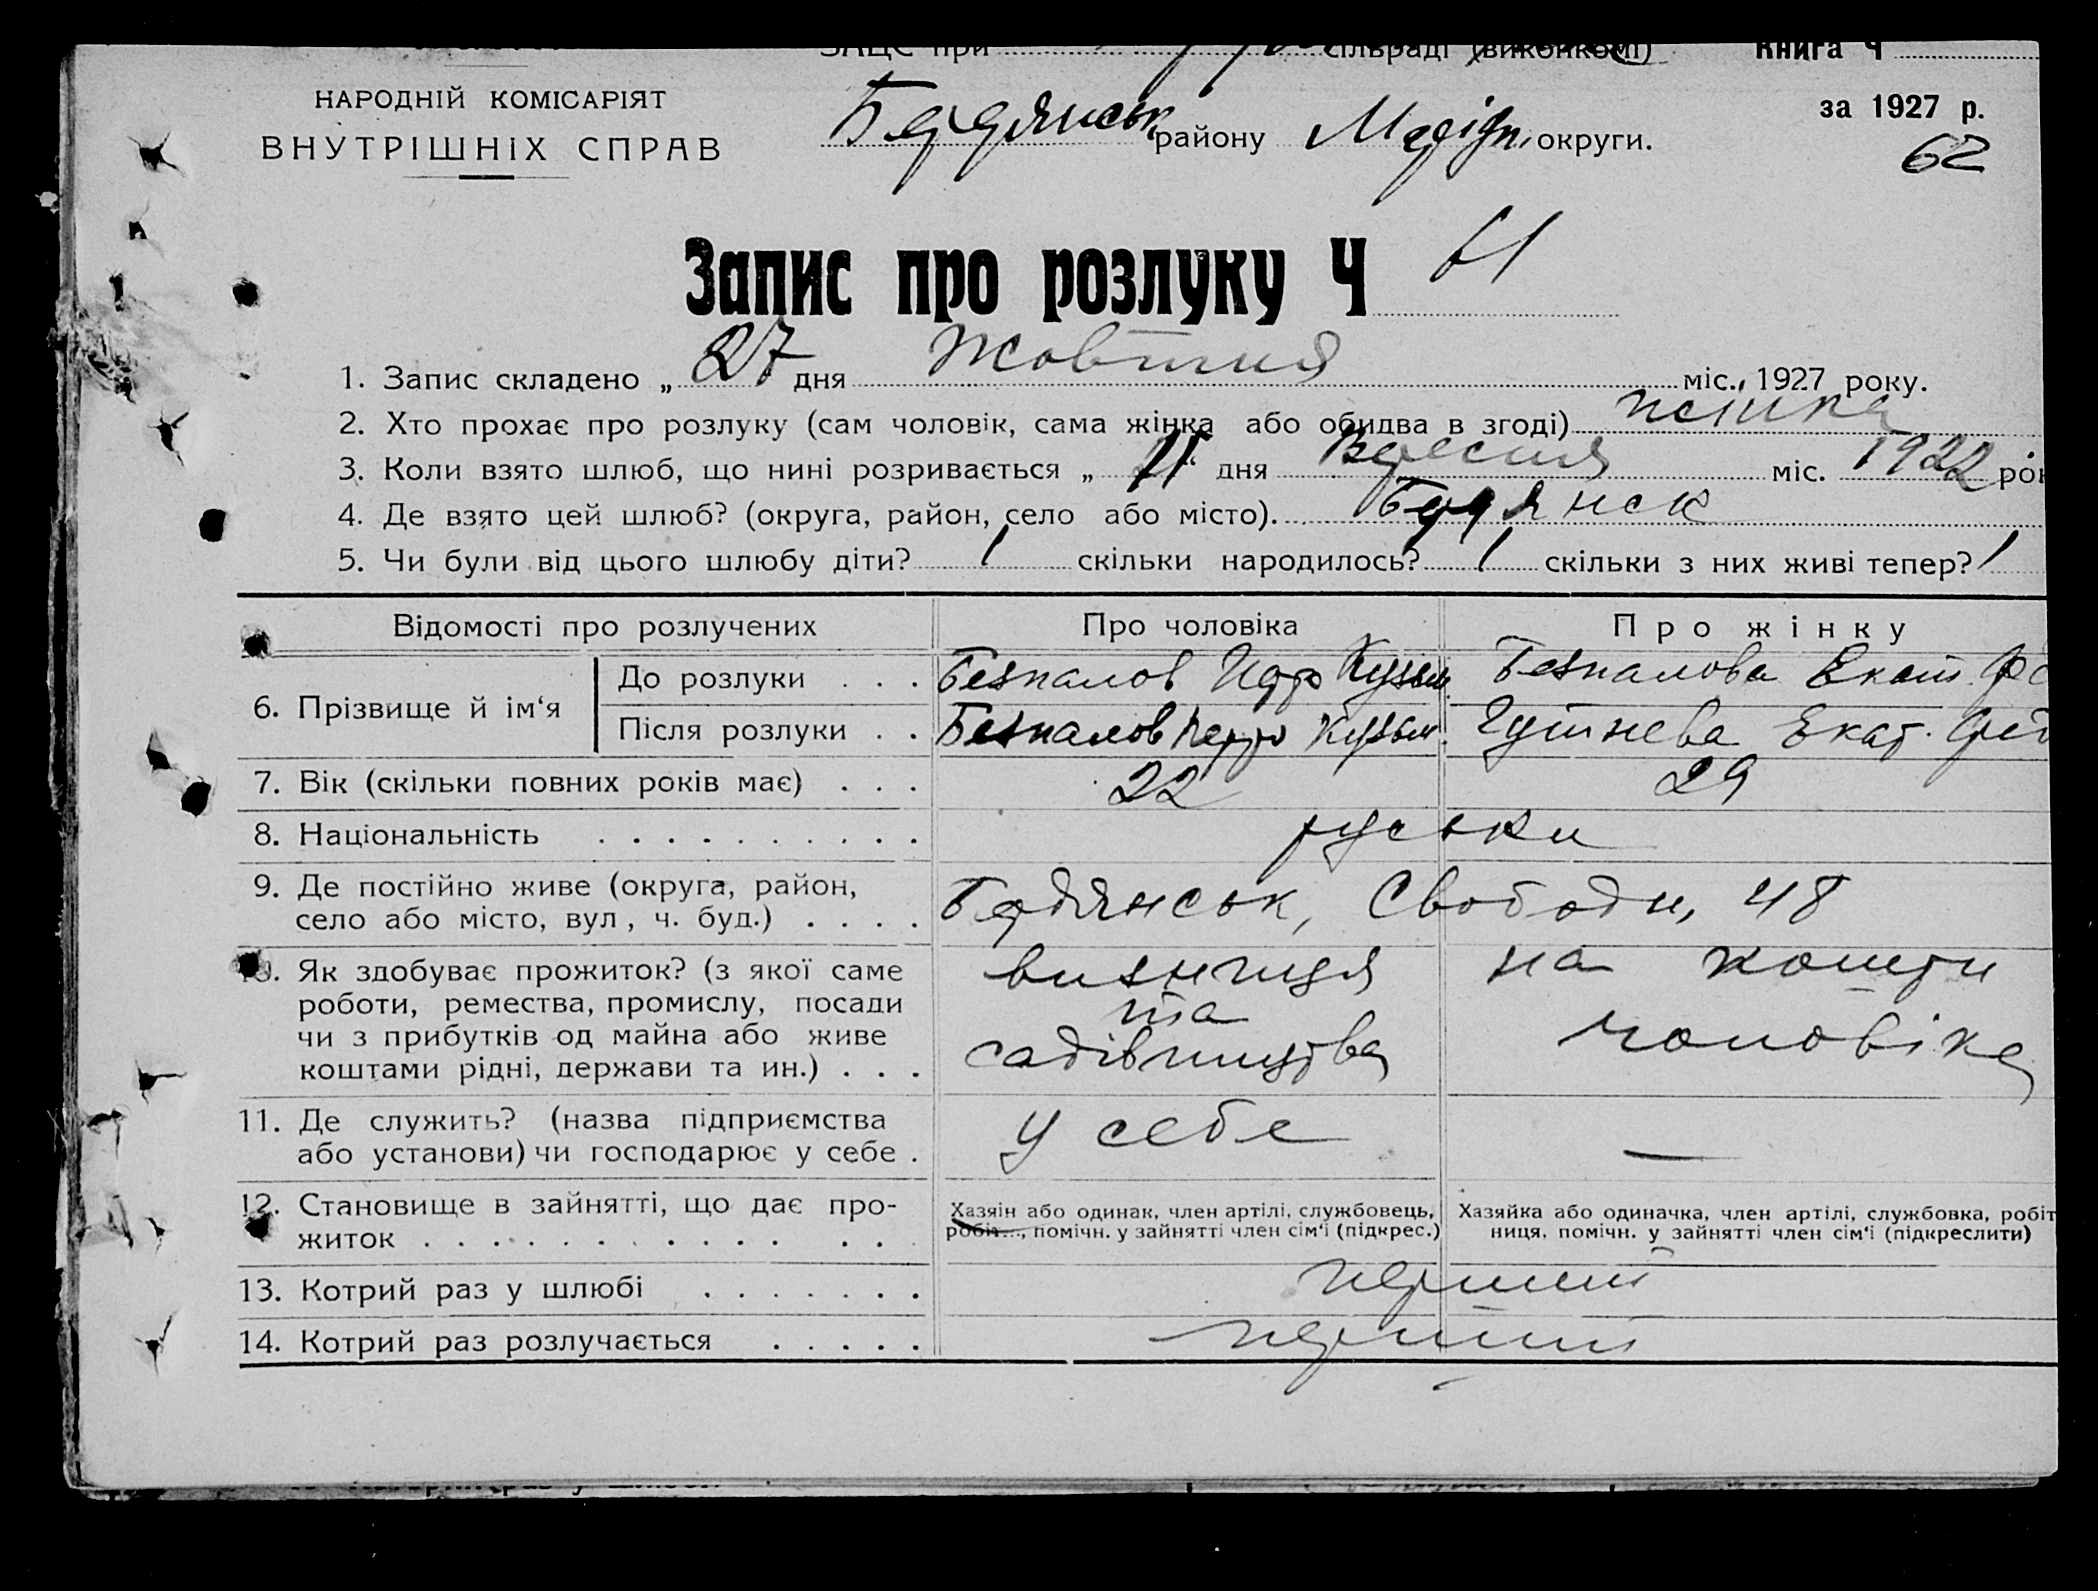 ЗАЦС при сільраді (виконкомі) Книга Ч
НАРОДНІЙ КОМІСАРІЯТ
ВНУТРІШНІХ СПРАВ
Бердянськ району Меліт. округи.
за 1927 р.
62
Запис про розлуку Ч 61
1. Запис складено „ 27 дня Жовтня міс., 1927 року.
2. Хто прохає про розлуку (сам чоловік, сама жінка або обидва в згоді) жінка
3. Коли взято шлюб, що нині розривається „ “ дня Вересня міс. 1922 рок
4. Де взято цей шлюб? (округа, район, село або місто). Бердянск
5. Чи були від цього шлюбу діти? 1 скільки народилось? 1 скільки з них живі тепер? 1
Відомості про розлучених Про чоловіка Про жінку
6. Прізвище й ім‘я
До розлуки . . . Безпалов Кузьм. Безпалова Екат. Фе
Після розлуки . . Безпалов Петро Кузьм. Гутнева Екат. Фед
7. Вік (скільки повних років має) . . . 22 29
8. Національність . . . . . . . . . . руськи
9. Де постійно живе (округа, район,
село або місто, вул , ч. буд.) . . . . Бердянськ, Свободи, 48
10. Як здобуває прожиток? (з якої саме
роботи, ремества, промислу, посади
чи з прибутків од майна або живе
коштами рідні, держави та ин.) . . .
визниця
та
садівництва
на кошти
чоловіка
11. Де служить? (назва підприємства
або установи) чи господарює у себе .
у себе —
12. Становище в зайнятті, що дає про-
житок . . . . . . . . . . . . .
Хазяін або одинак, член артілі, службовець,
робіт..., помічн. у зайнятті член сім‘ї (підкрес.)
Хазяйка або одиначка, член артілі, службовка, робіт
ниця, помічн. у зайнятті член сім‘ї (підкреслити)
13. Котрий раз у шлюбі . . . . . . . перший
14. Котрий раз розлучається . . . . . перший